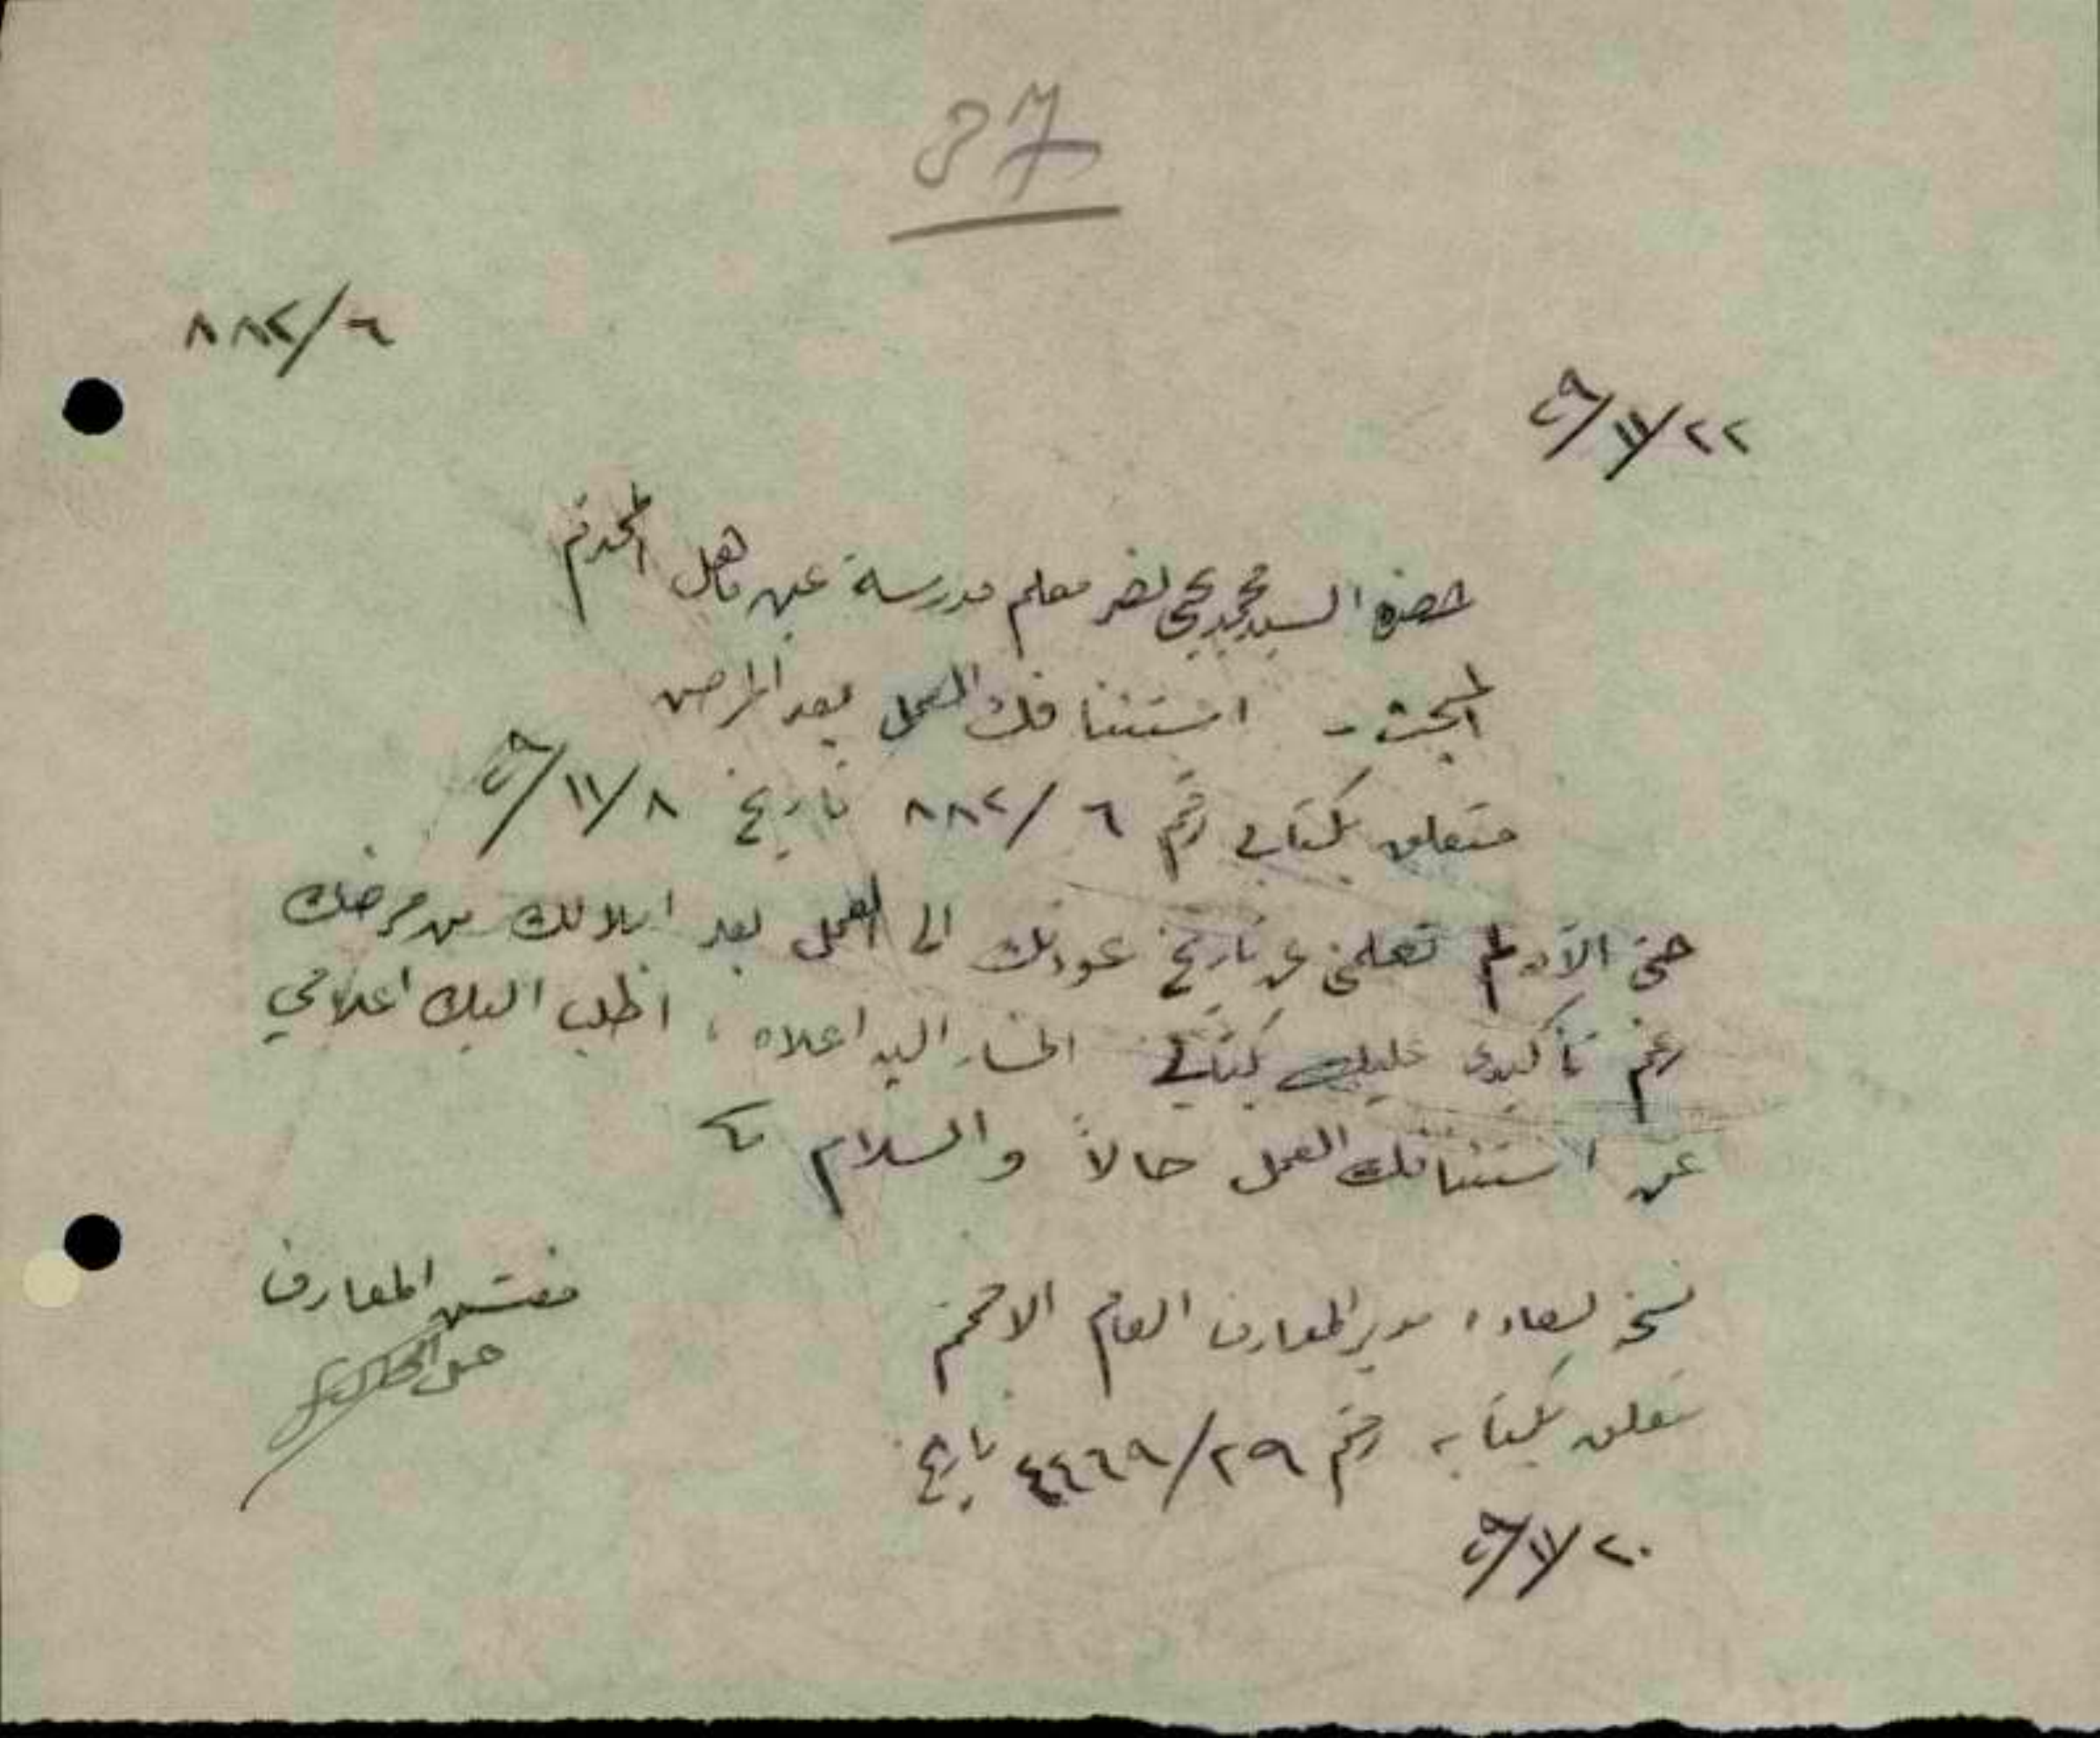 37
٨٨٢/٦
٢٩/١١/٢٢
حضرة السيد محمد يحيى نصر معلم مدرسة عين ماهل المحترم
المبحث - استئنافك العمل بعد المرض
متعلق بكتابي رقم ٨٨٢/٦ تاريخ ٢٩/١١/٨
حتى الآن لم تعلمني عن تاريخ عودتك الى العمل بعد ابلالك من مرضك
رغم تأكيدي عليك بكتابي المشار اليه اعلاه ، اطلب اليك اعلامي
عن استئنافك العمل حالاً والسلام
مفتش المعارف
نسخة لسعادة مدير المعارف العام الافخم
متعلق بكتابه رقم ٤٤٦٩/٢٩ تاريخ
٢٩/١١/٢٠